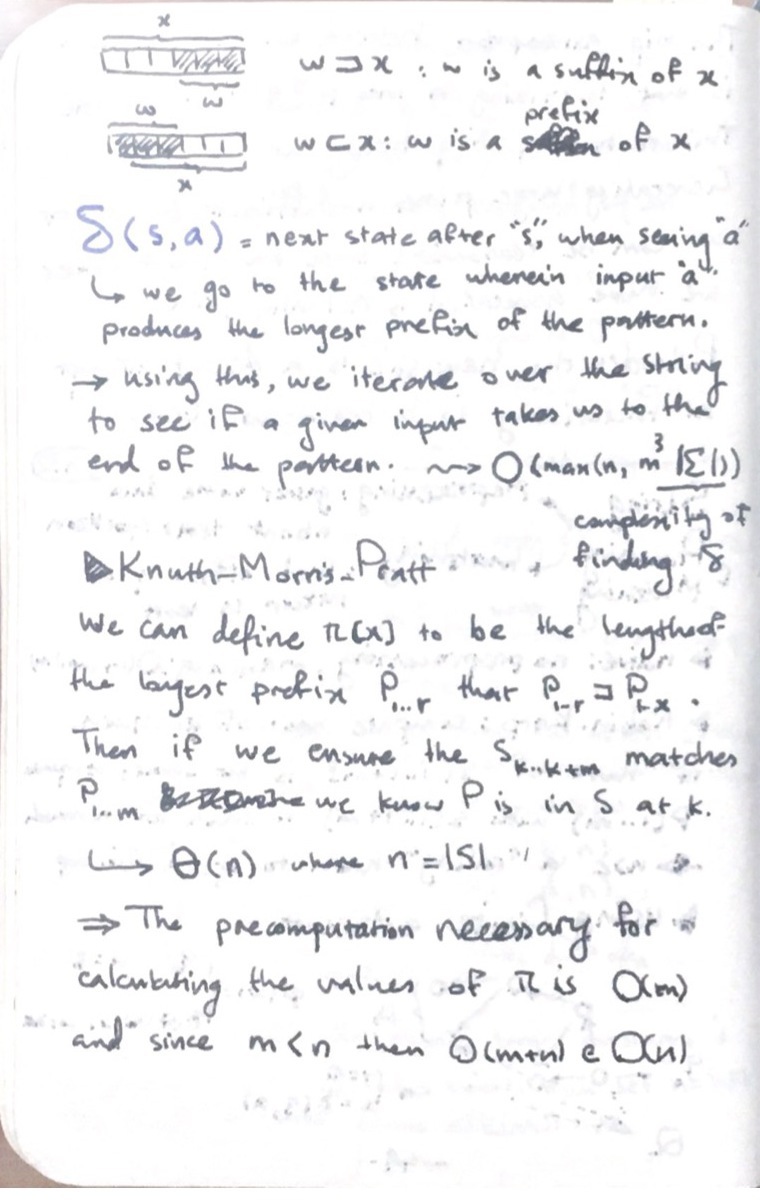 x
w ⊐ x : w is a suffix of x
w
w
prefix
w ⊏ x : w is a of x
x
δ(s,a) = next state after "s", when seeing "a"
↳ we go to the state wherein input "a"
produces the longest prefix of the pattern.
→ using this, we iterate over the string
to see if a given input takes us to the
end of the pattern. ⇝ O(max(n, m³|Σ|))
complexity of
finding δ
▶ Knuth-Morris-Pratt
We can define π[x] to be the length of
the largest prefix P₁..r that P₁..r ⊐ P₁..x .
Then if we ensure the S k..k+m matches
P₁...m we know P is in S at k.
↳ Θ(n) where n = |S|
⇒ The precomputation necessary for
calculating the values of π is O(m)
and since m < n then Θ(m+n) ∈ O(n)